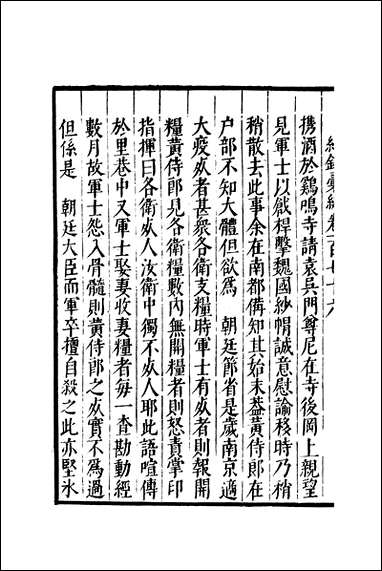 紀錄彙編卷一百七十六
携酒於鷄鳴寺請袁兵門尊尼在寺後岡上親望
見軍士以戧桿擊魏國紗帽誠意慰諭移時乃稍
稍散去此事余在南都備知其始末葢黃侍郞在
户部不知大體但欲爲 朝廷節省是歲南京適
大疫𣦸者甚衆各衛支糧時軍士有𣦸者則報開
糧黃侍郞見各衛糧數內無開糧者則怒責掌印
指揮曰各衛𣦸人汝衛中獨不𣦸人耶此語喧傳
於里巷中又軍士娶妻收妻糧者每一查勘動經
數月故軍士怨入骨髓則黃侍郞之𣦸實不爲過
但係是 朝廷大臣而軍卒擅自殺之此亦堅氷